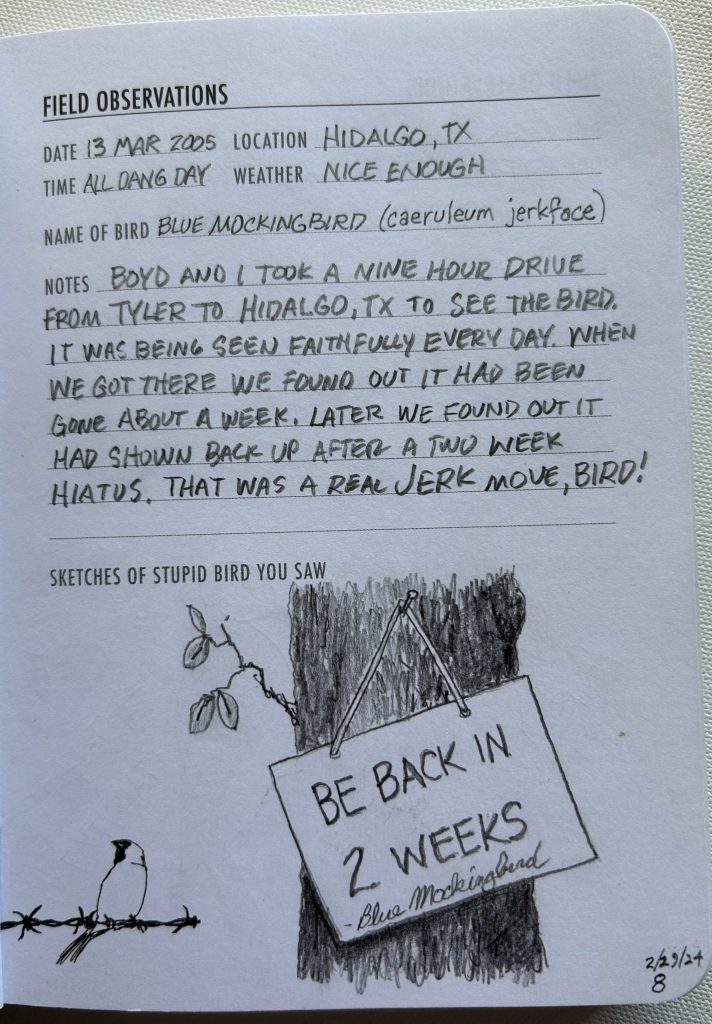 FIELD OBSERVATIONS
DATE 13 MAR 2005 LOCATION HIDALGO, TX
TIME ALL DANG DAY WEATHER NICE ENOUGH
NAME OF BIRD BLUE MOCKINGBIRD (caeruleum jerkface)
NOTES BOYD AND I TOOK A NINE HOUR DRIVE
FROM TYLER TO HIDALGO, TX TO SEE THE BIRD.
IT WAS BEING SEEN FAITHFULLY EVERY DAY. WHEN
WE GOT THERE WE FOUND OUT IT HAD BEEN
GONE ABOUT A WEEK. LATER WE FOUND OUT IT
HAD SHOWN BACK UP AFTER A TWO WEEK
HIATUS. THAT WAS A REAL JERK MOVE, BIRD!
SKETCHES OF STUPID BIRD YOU SAW
BE BACK IN
2 WEEKS
- Blue Mockingbird
2/29/24
8